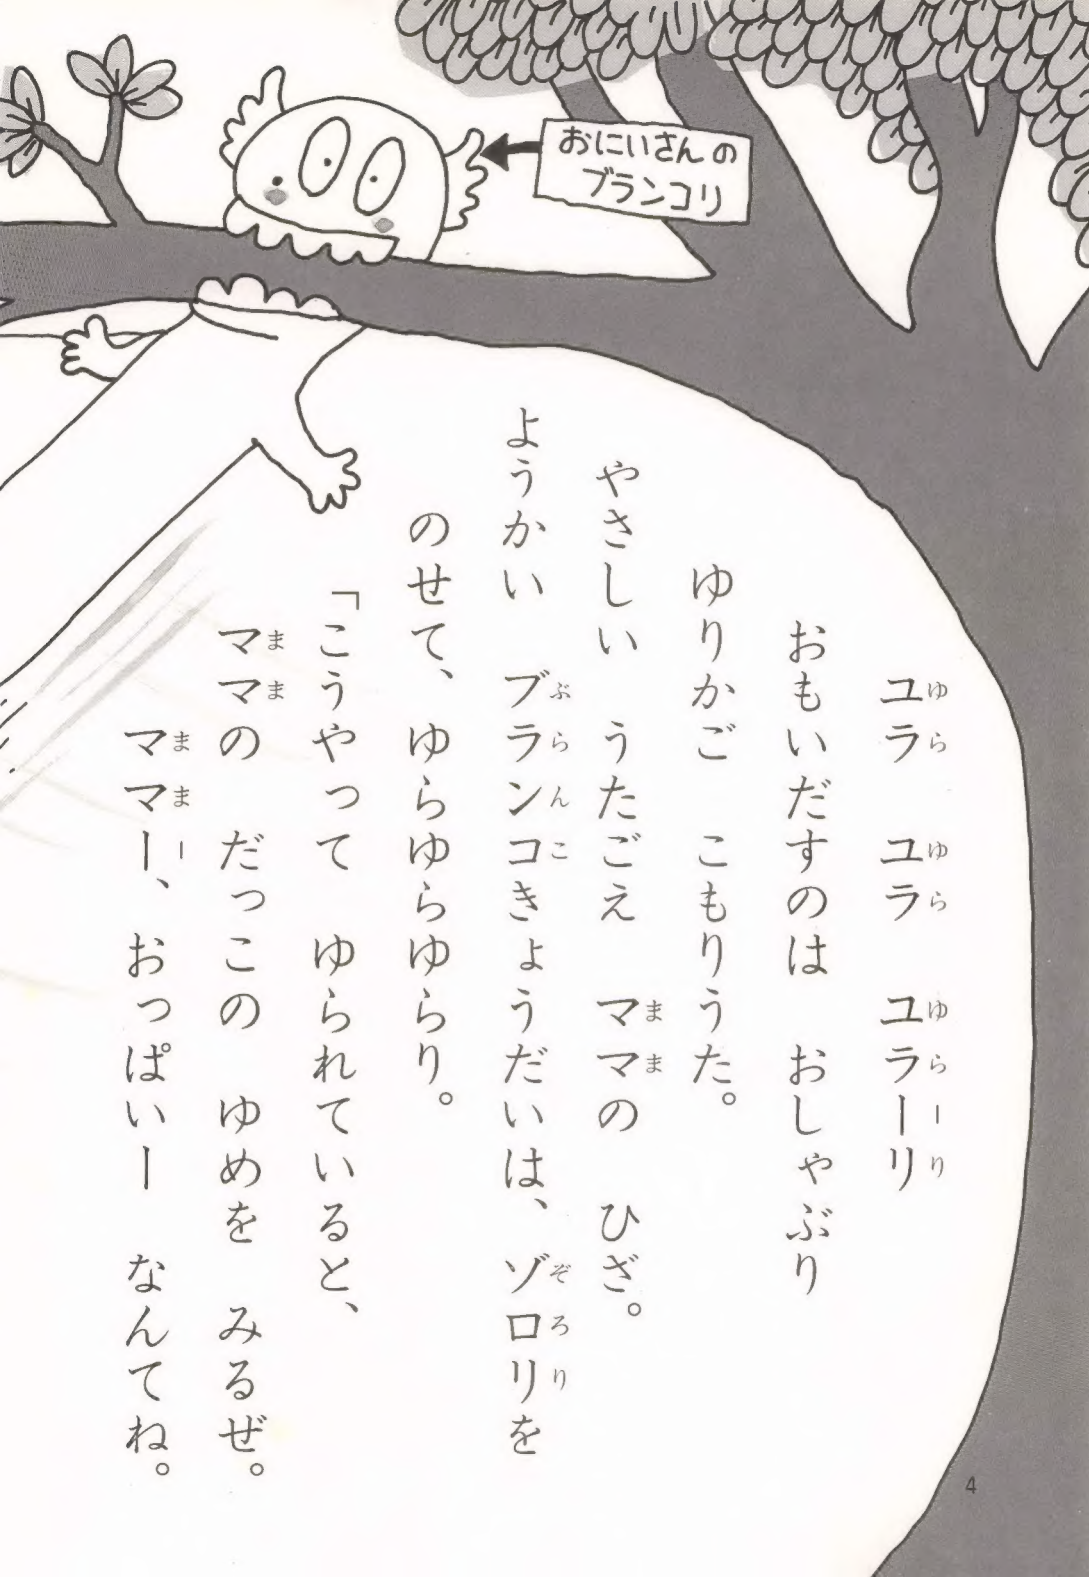 おにいさんの
ブランコリ
ユラ　ユラ　ユラーリ
おもいだすのは　おしゃぶり
ゆりかご　こもりうた。
やさしい　うたごえ　ママの　ひざ。
ようかい　ブランコきょうだいは、ゾロリを
のせて、ゆらゆらゆらり。
「こうやって　ゆられていると、
ママの　だっこの　ゆめを　みるぜ。
ママー、おっぱいー　なんてね。
4